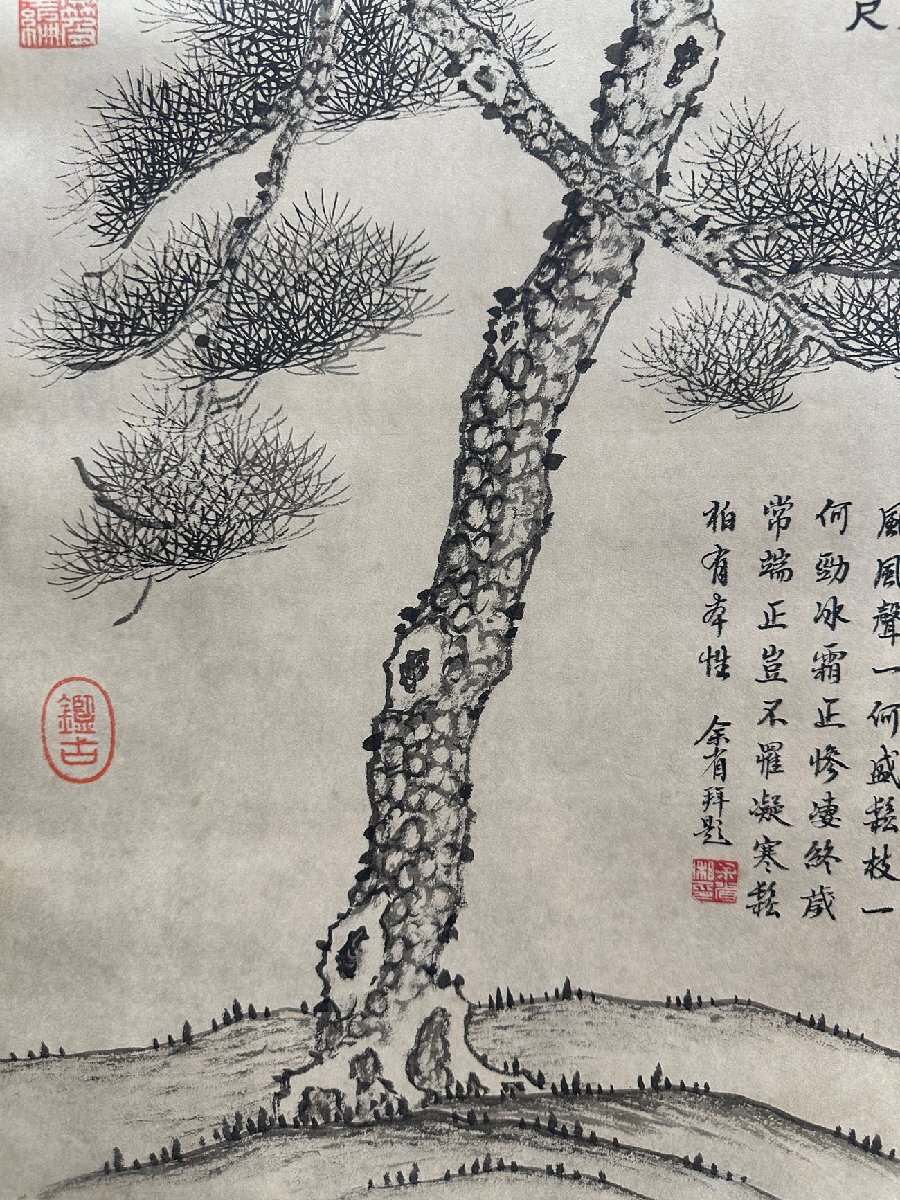 尺
風風聲一何盛鬆枝一
何勁冰霜正慘凄終歲
常端正豈不罹凝寒鬆
柏有本性 余省拜題
鑑古